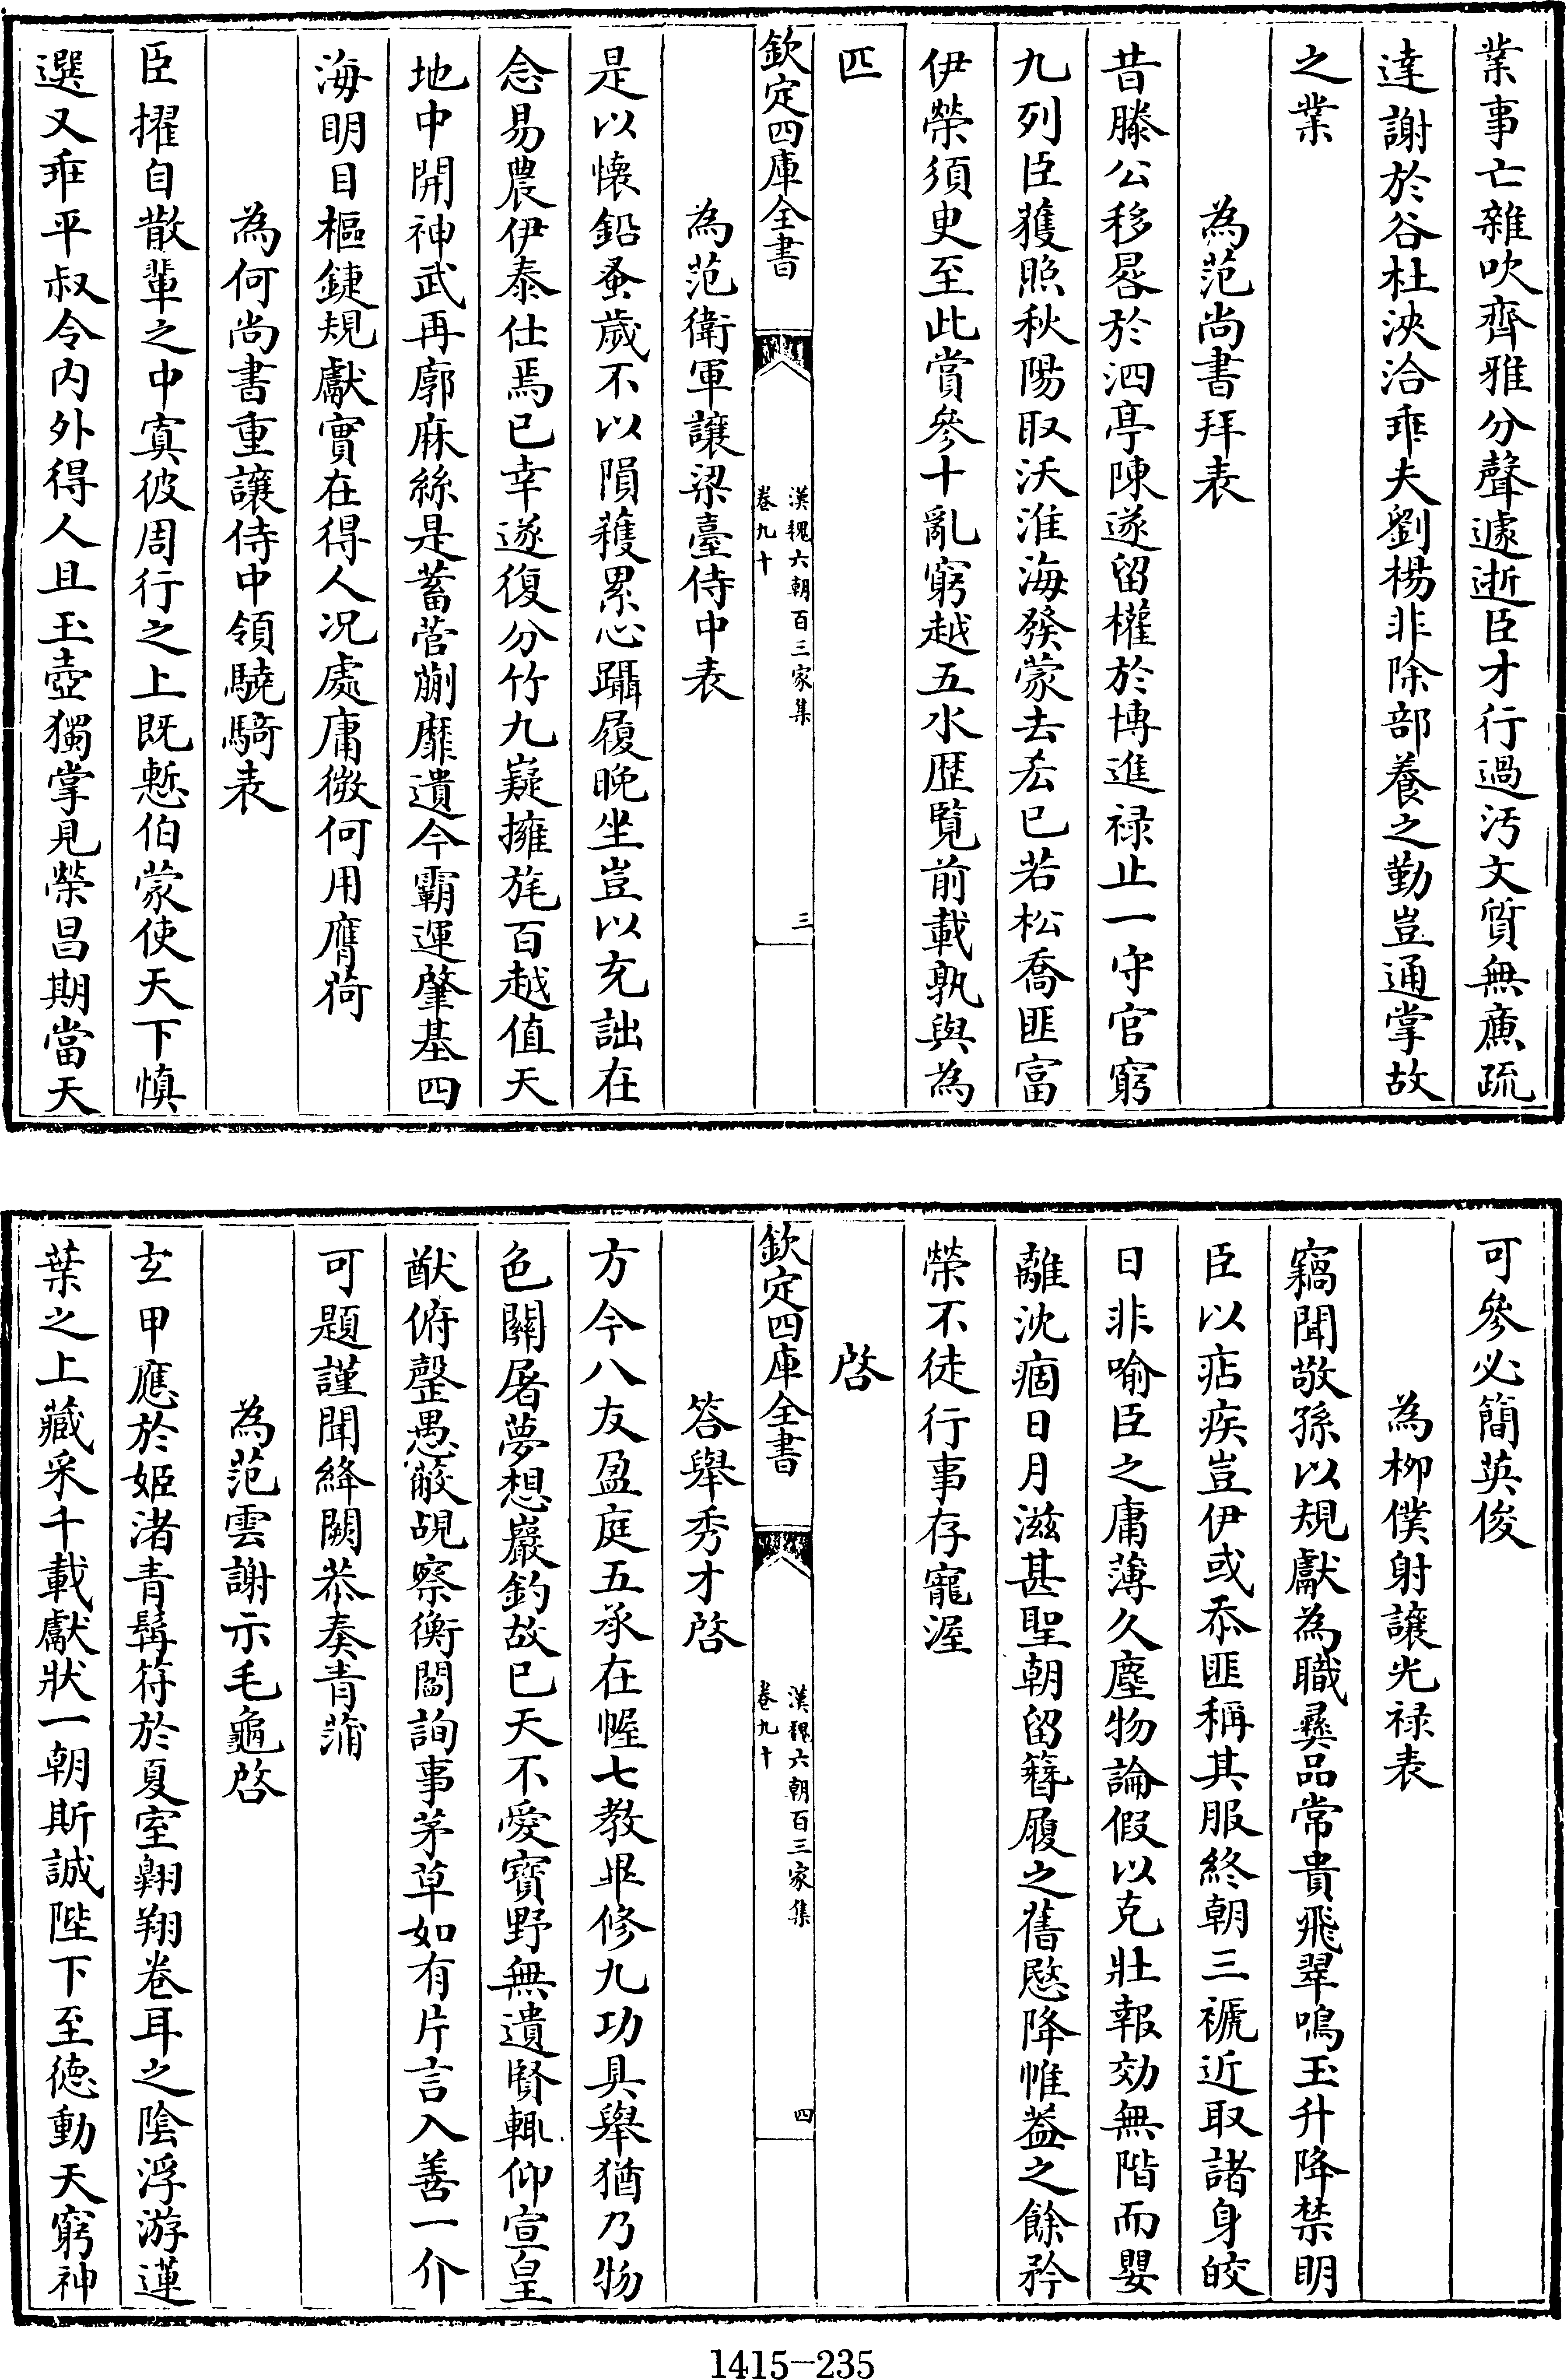 業事亡雜吹齊雅分聲遽逝臣才行過汚文質無廉疏
達謝於谷杜浹洽乖夫劉楊非除部養之勤豈通掌故
之業
為范尚書拜表
昔滕公移晷於泗亭陳遂留權於博進禄止一守官窮
九列臣獲照秋陽取沃淮海發蒙去厺已若松喬匪富
伊榮須臾至此賞參十亂窮越五水歴覧前載孰與為
匹
欽定四庫全書
漢魏六朝百三家集
卷九十
三
為范衛軍讓梁臺侍中表
是以懷鉛蚤歲不以隕穫累心躡履晚坐豈以充詘在
念易農伊泰仕焉已幸遂復分竹九嶷擁旄百越值天
地中開神武再廓麻絲是蓄菅蒯靡遺今霸運肇基四
海明目樞鍵規獻實在得人况處庸微何用膺荷
為何尚書重讓侍中領驍騎表
臣擢自散輩之中寘彼周行之上既慙伯蒙使天下慎
選又乖平叔令内外得人且玉壺獨掌見榮昌期當天
可參必簡英俊
為栁僕射讓光禄表
竊聞敬孫以規獻為職彞品常貴飛翠鳴玉升降禁明
臣以痁疾豈伊或忝匪稱其服終朝三褫近取諸身皎
日非喻臣之庸薄久塵物論假以克壯報効無階而嬰
離沈痼日月滋甚聖朝留簪履之舊愍降惟葢之餘矜
榮不徒行事存寵渥
啓
欽定四庫全書
漢魏六朝百三家集
卷九十
四
答舉秀才啓
方今八友盈庭五承在幄七教畢修九功具舉猶乃物
色關屠夢想巖釣故已天不愛寳野無遺賢輒仰宣皇
猷俯罄愚蔽覘察衡閭詢事茅草如有片言入善一介
可題謹聞絳闕恭奏青蒲
為范雲謝示毛龜啓
玄甲應於姬渚青髯符於夏室翺翔卷耳之陰浮游蓮
葉之上藏采千載獻狀一朝斯誠陛下至德動天窮神
1415—235